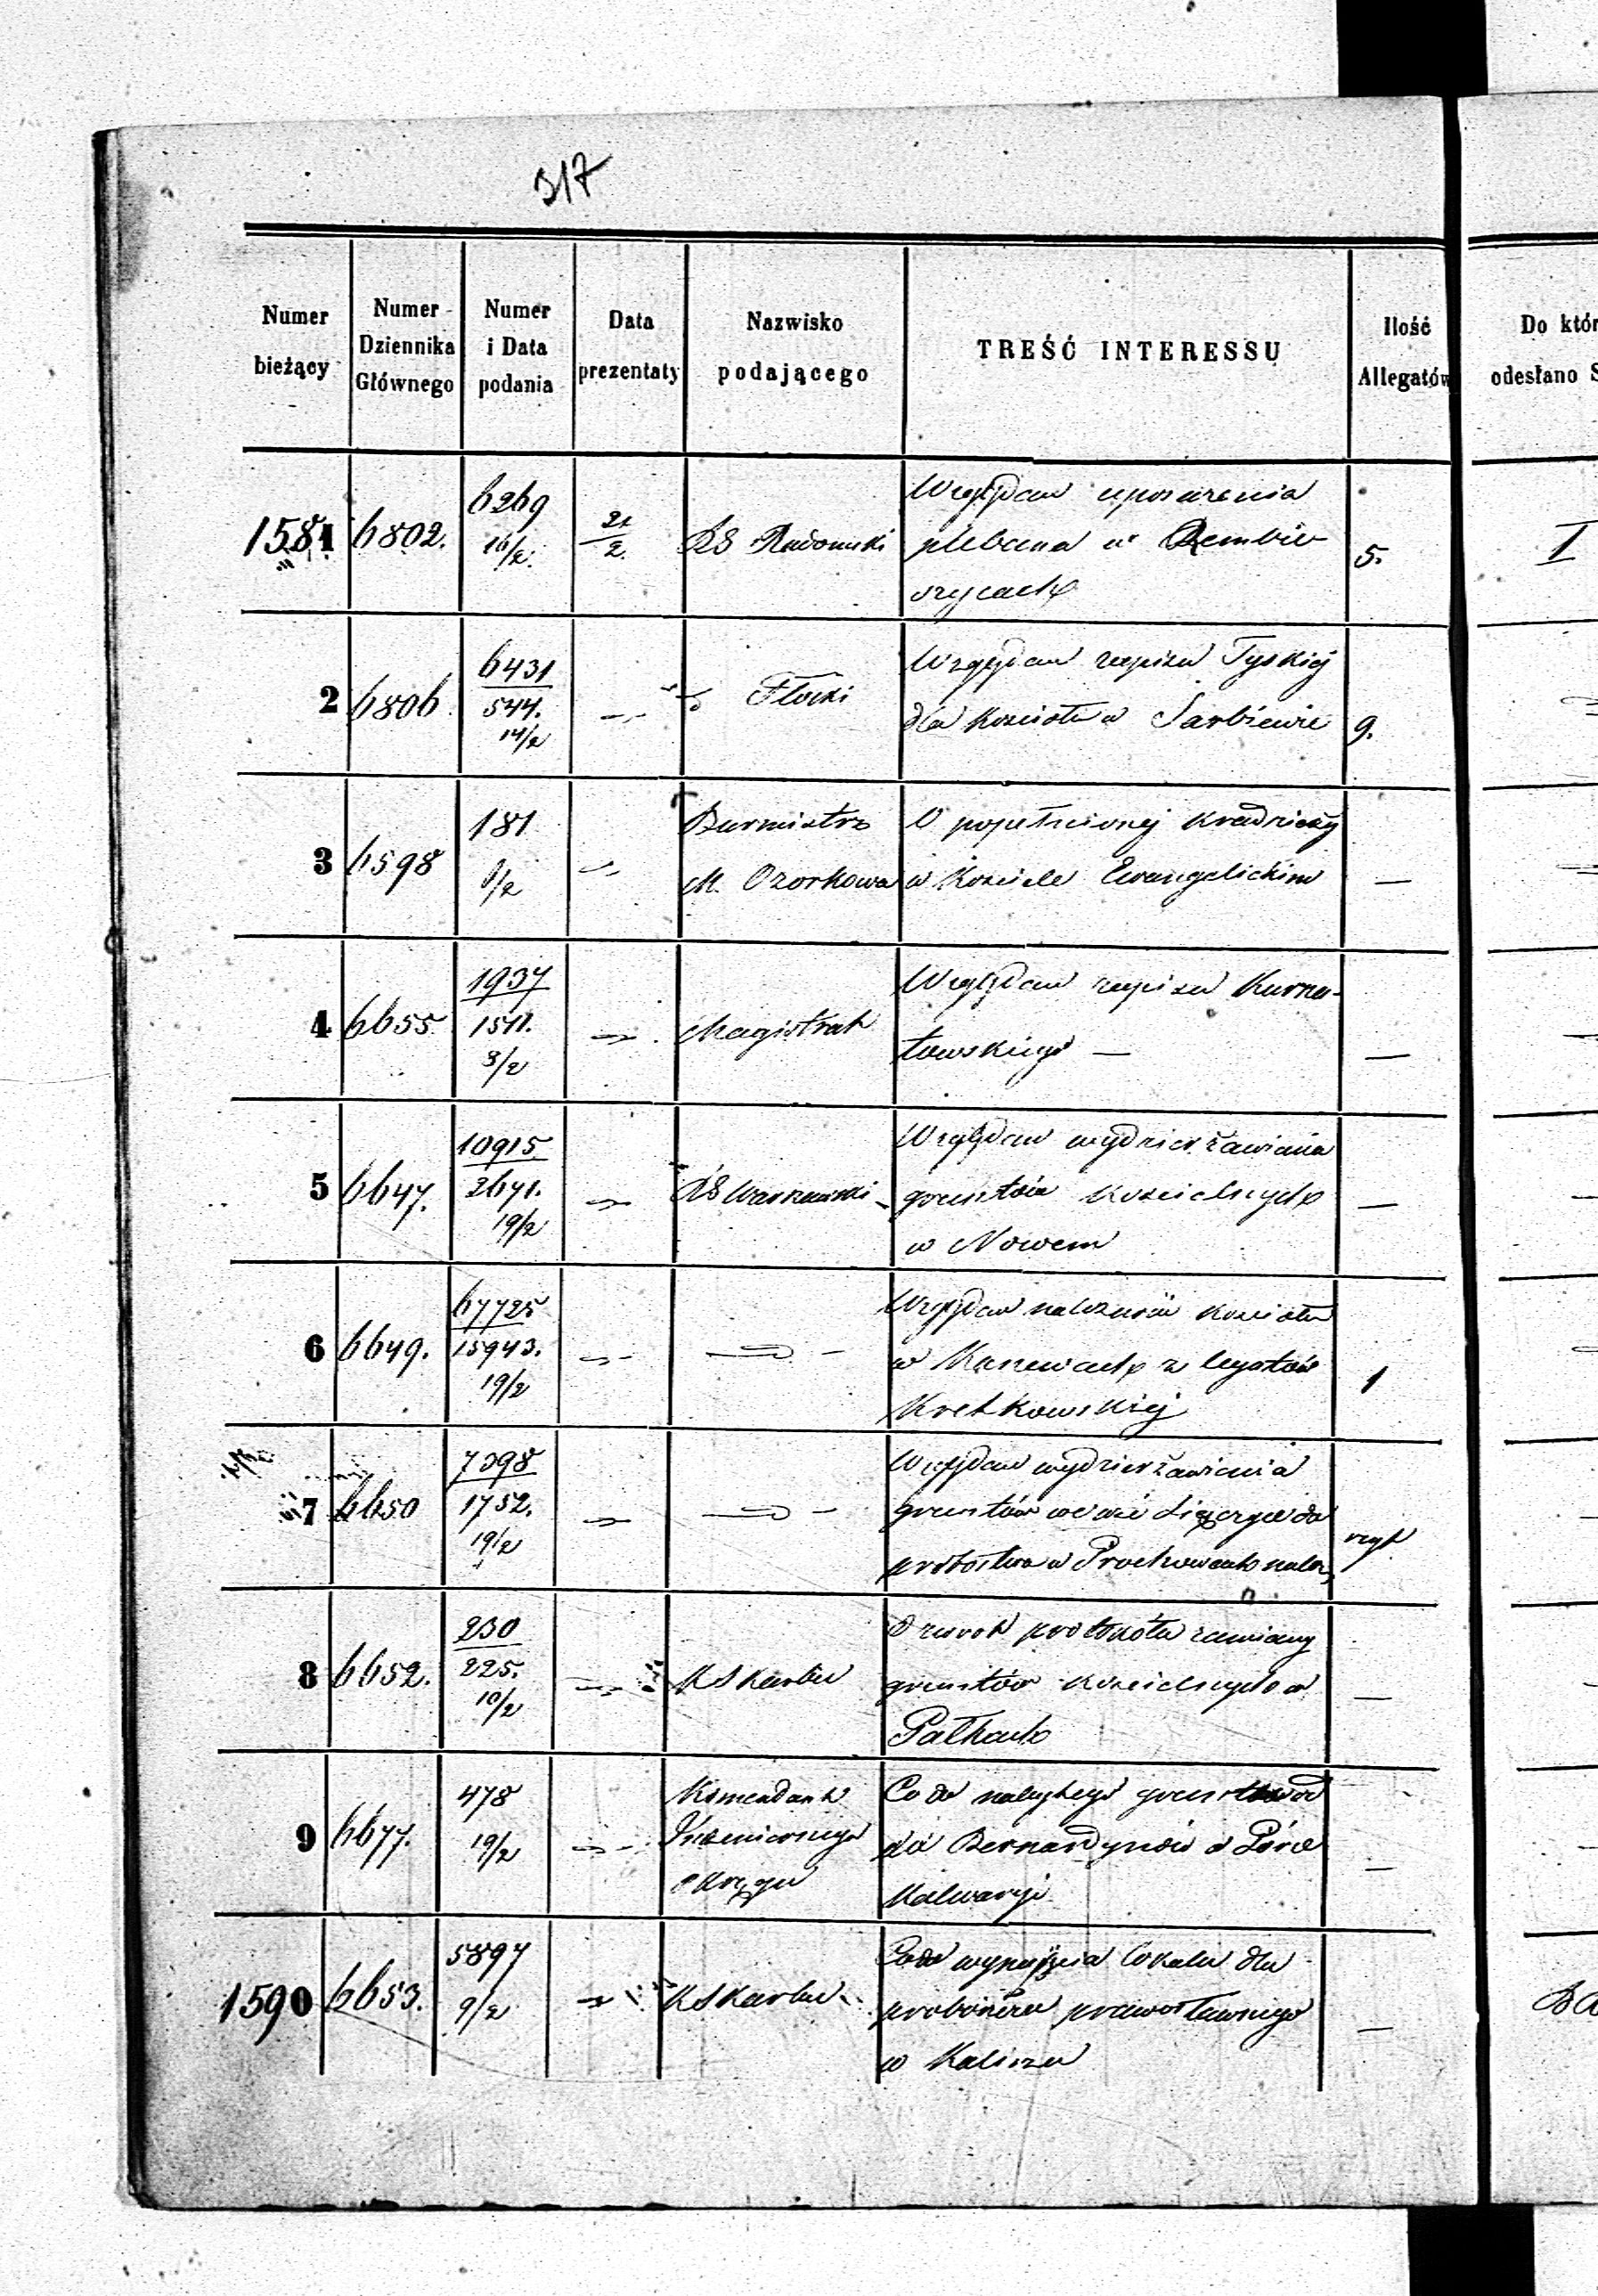 317
Numer bieżący
Numer Dziennika Głównego
Numer i Data podania
Data prezentaty
Nazwisko podającego
TREŚĆ INTERESSU
Ilość Allegatów
Do któr
odesłano S
1581 6802. 6269 16/2. 21/2. RS Radomski
Względem uposażenia
plebana w Dembie
szycach
5.
I
2 6806 6431 544. 14/2 Płocki
Względem zapisu Tyskiej
dla kościoła w Sarbiewie
9.
3 6598 181 9/2
Burmistrz
M. Ozorkowa
O popełnionej kradzieży
w kościele Ewangelickim
—
4 6655. 1937 1511. 3/2 Magistrat
Względem zapisu Kurna-
towskiego —
—
5 6647. 10915. 2671. 19/2 RS Warszawski
Względem wydzierżawienia
gruntów kościelnych
w Nowem
—
6 6649. 67725 15943. 19/2
Względem należności kościoła
w Kaszewach z legatów
Kretkowskiej
1
7 6650 7398 1752. 19/2
Względem wydzierżawienia
gruntów we wsi
probostwa w Prochowach
8 6652. 230 225. 10/2 K Skarbu
Zwrot protokółu zamiany
gruntów kościelnych w
—
9 6677. 478 19/2
Komendant
Inżeniernego
okręgu
Co do nabytego gruntu od
Bernardynów w Górze
Kalwaryi
—
1590 6653. 5897 9/2 K Skarbu
Co do wynajęcia lokalu dla
proboszcza prawosławnego
w Kaliszu
—